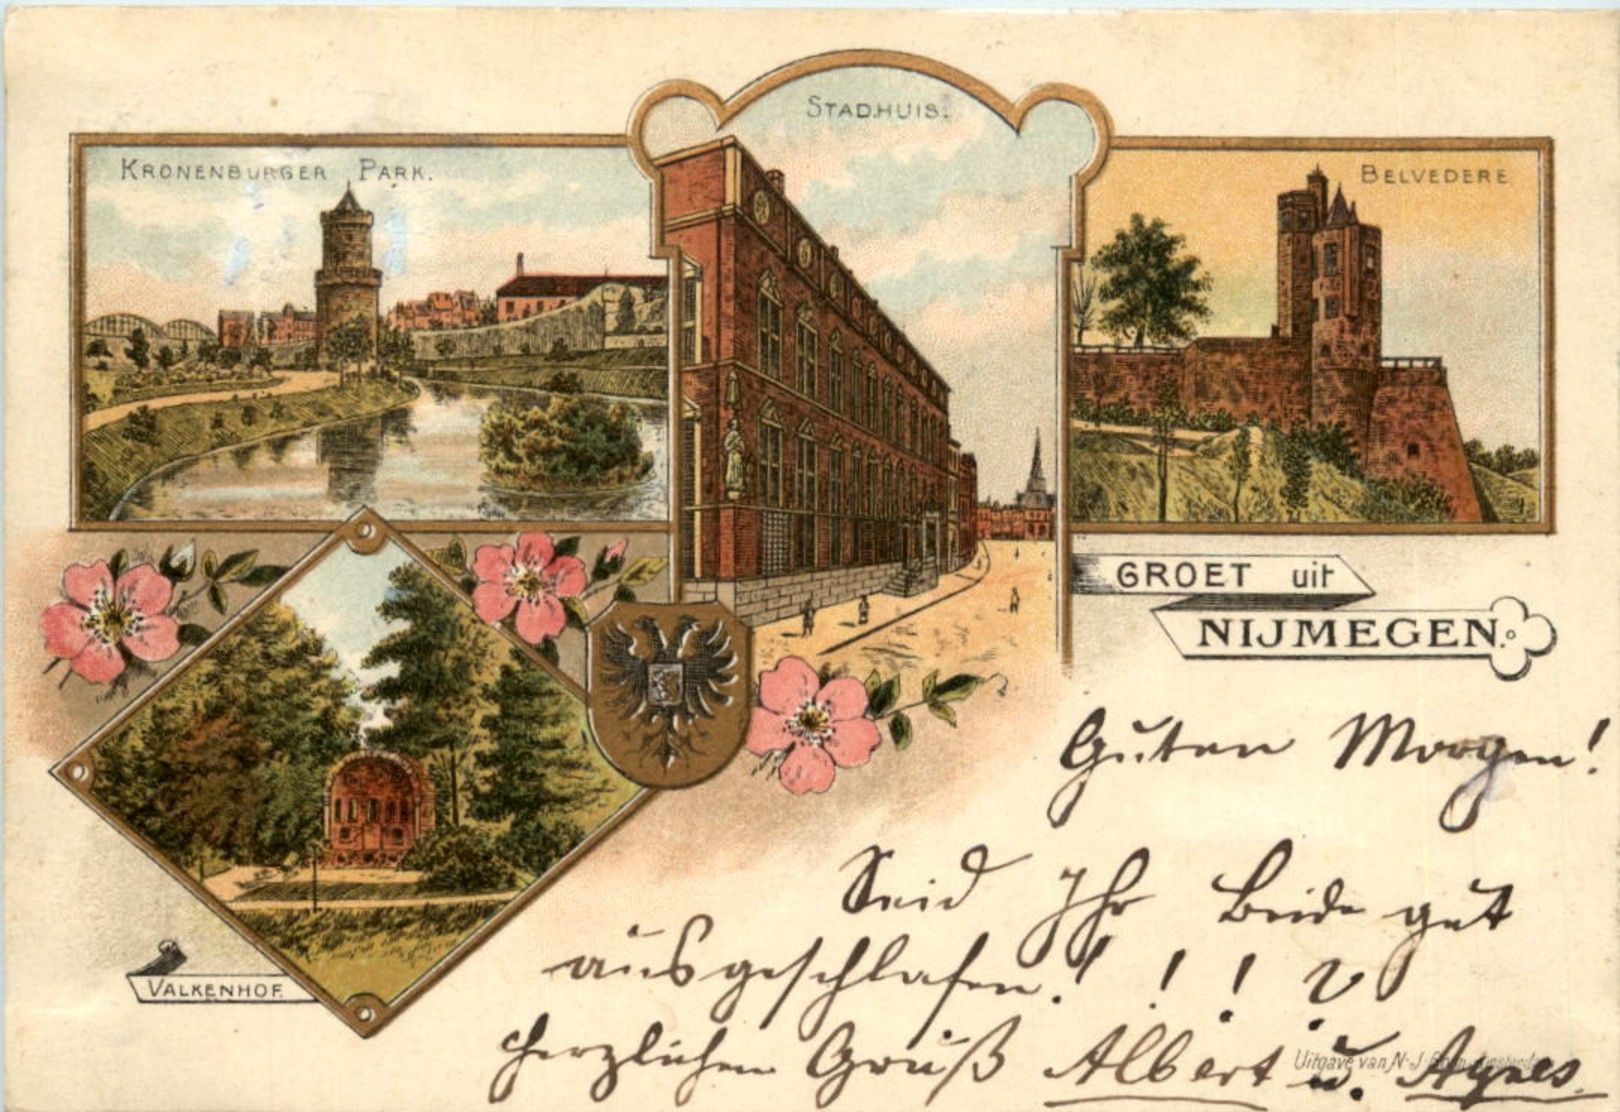 KRONENBURGER PARK.
STADHUIS.
BELVEDERE
GROET uit
NIJMEGEN.
VALKENHOF.
Guten Morgen!
Seid Ihr Beide gut
ausgeschlafen! ! ! ?
Herzlichen Gruß Albert u. Agnes.
Uitgave van N. J.